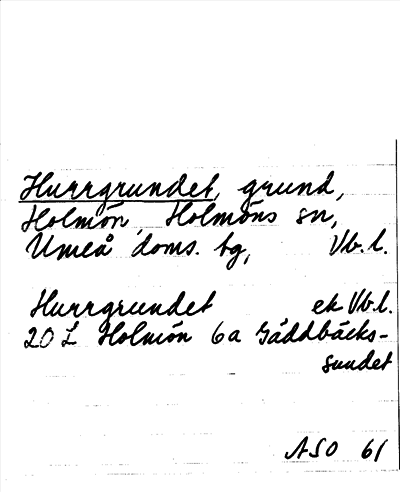 Hurrgrundet, grund,
Holmön, Holmöns sn,
Umeå doms. bg, Vb.l.
Hurrgrundet ek Vb.l.
20 L Holmön 6a Gäddbäcks-
sundet
ASO 61